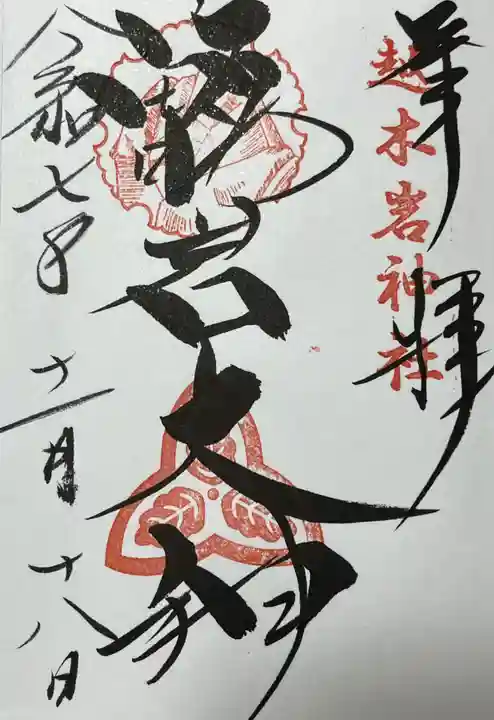 奉拝
越木岩神社
甑岩大神
令和七年十一月十八日